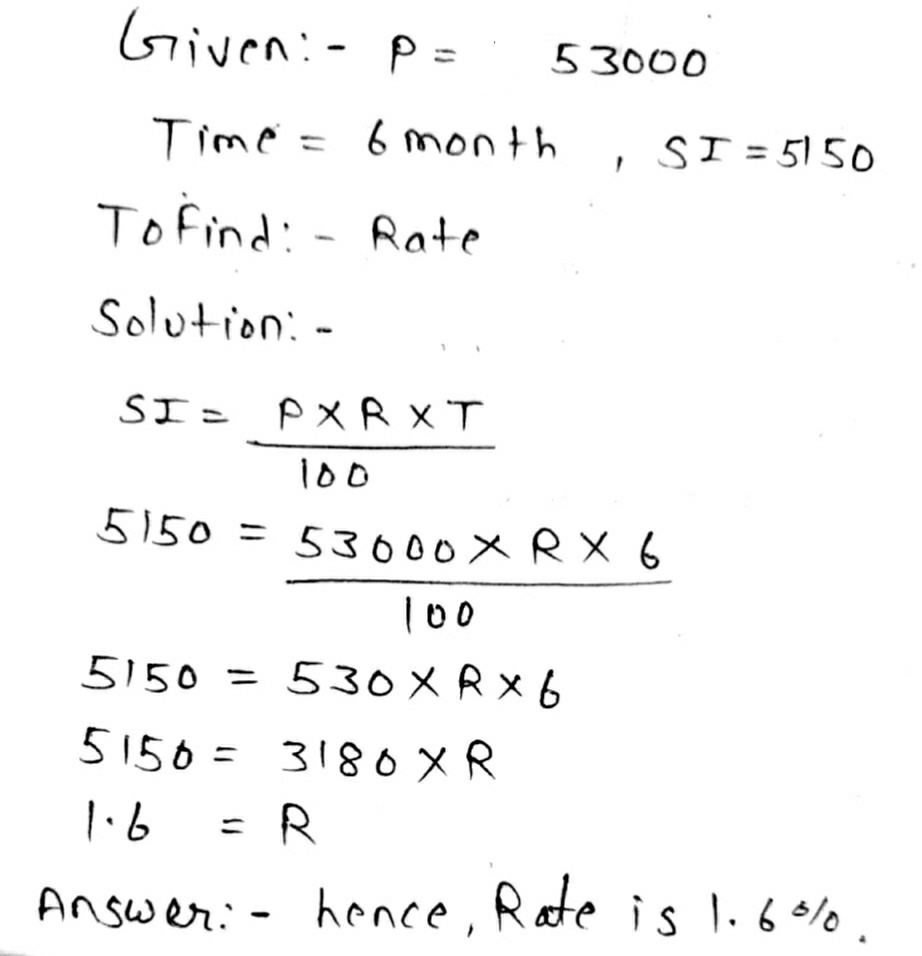 Given:- P = 53000
Time = 6 month , SI = 5150
To find:- Rate
Solution:-
SI = P X R X T
100
5150 = 53000 X R X 6
100
5150 = 530 X R X 6
5150 = 3180 X R
1.6 = R
Answer:- hence, Rate is 1.6%.